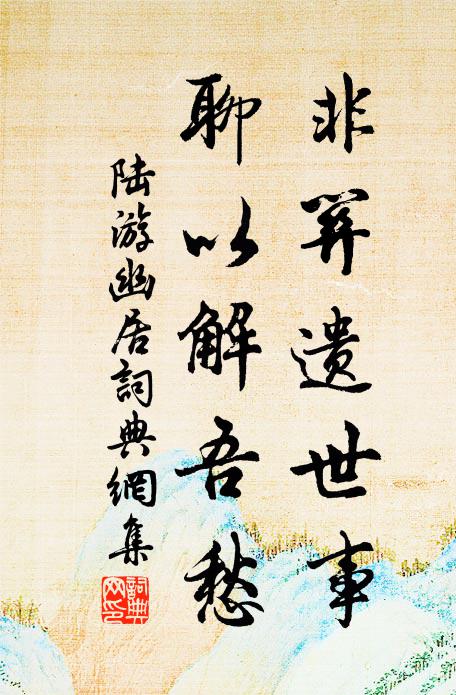 非關遗世事
聊以解吾愁
陆游幽居詞典網集
詞典
网印